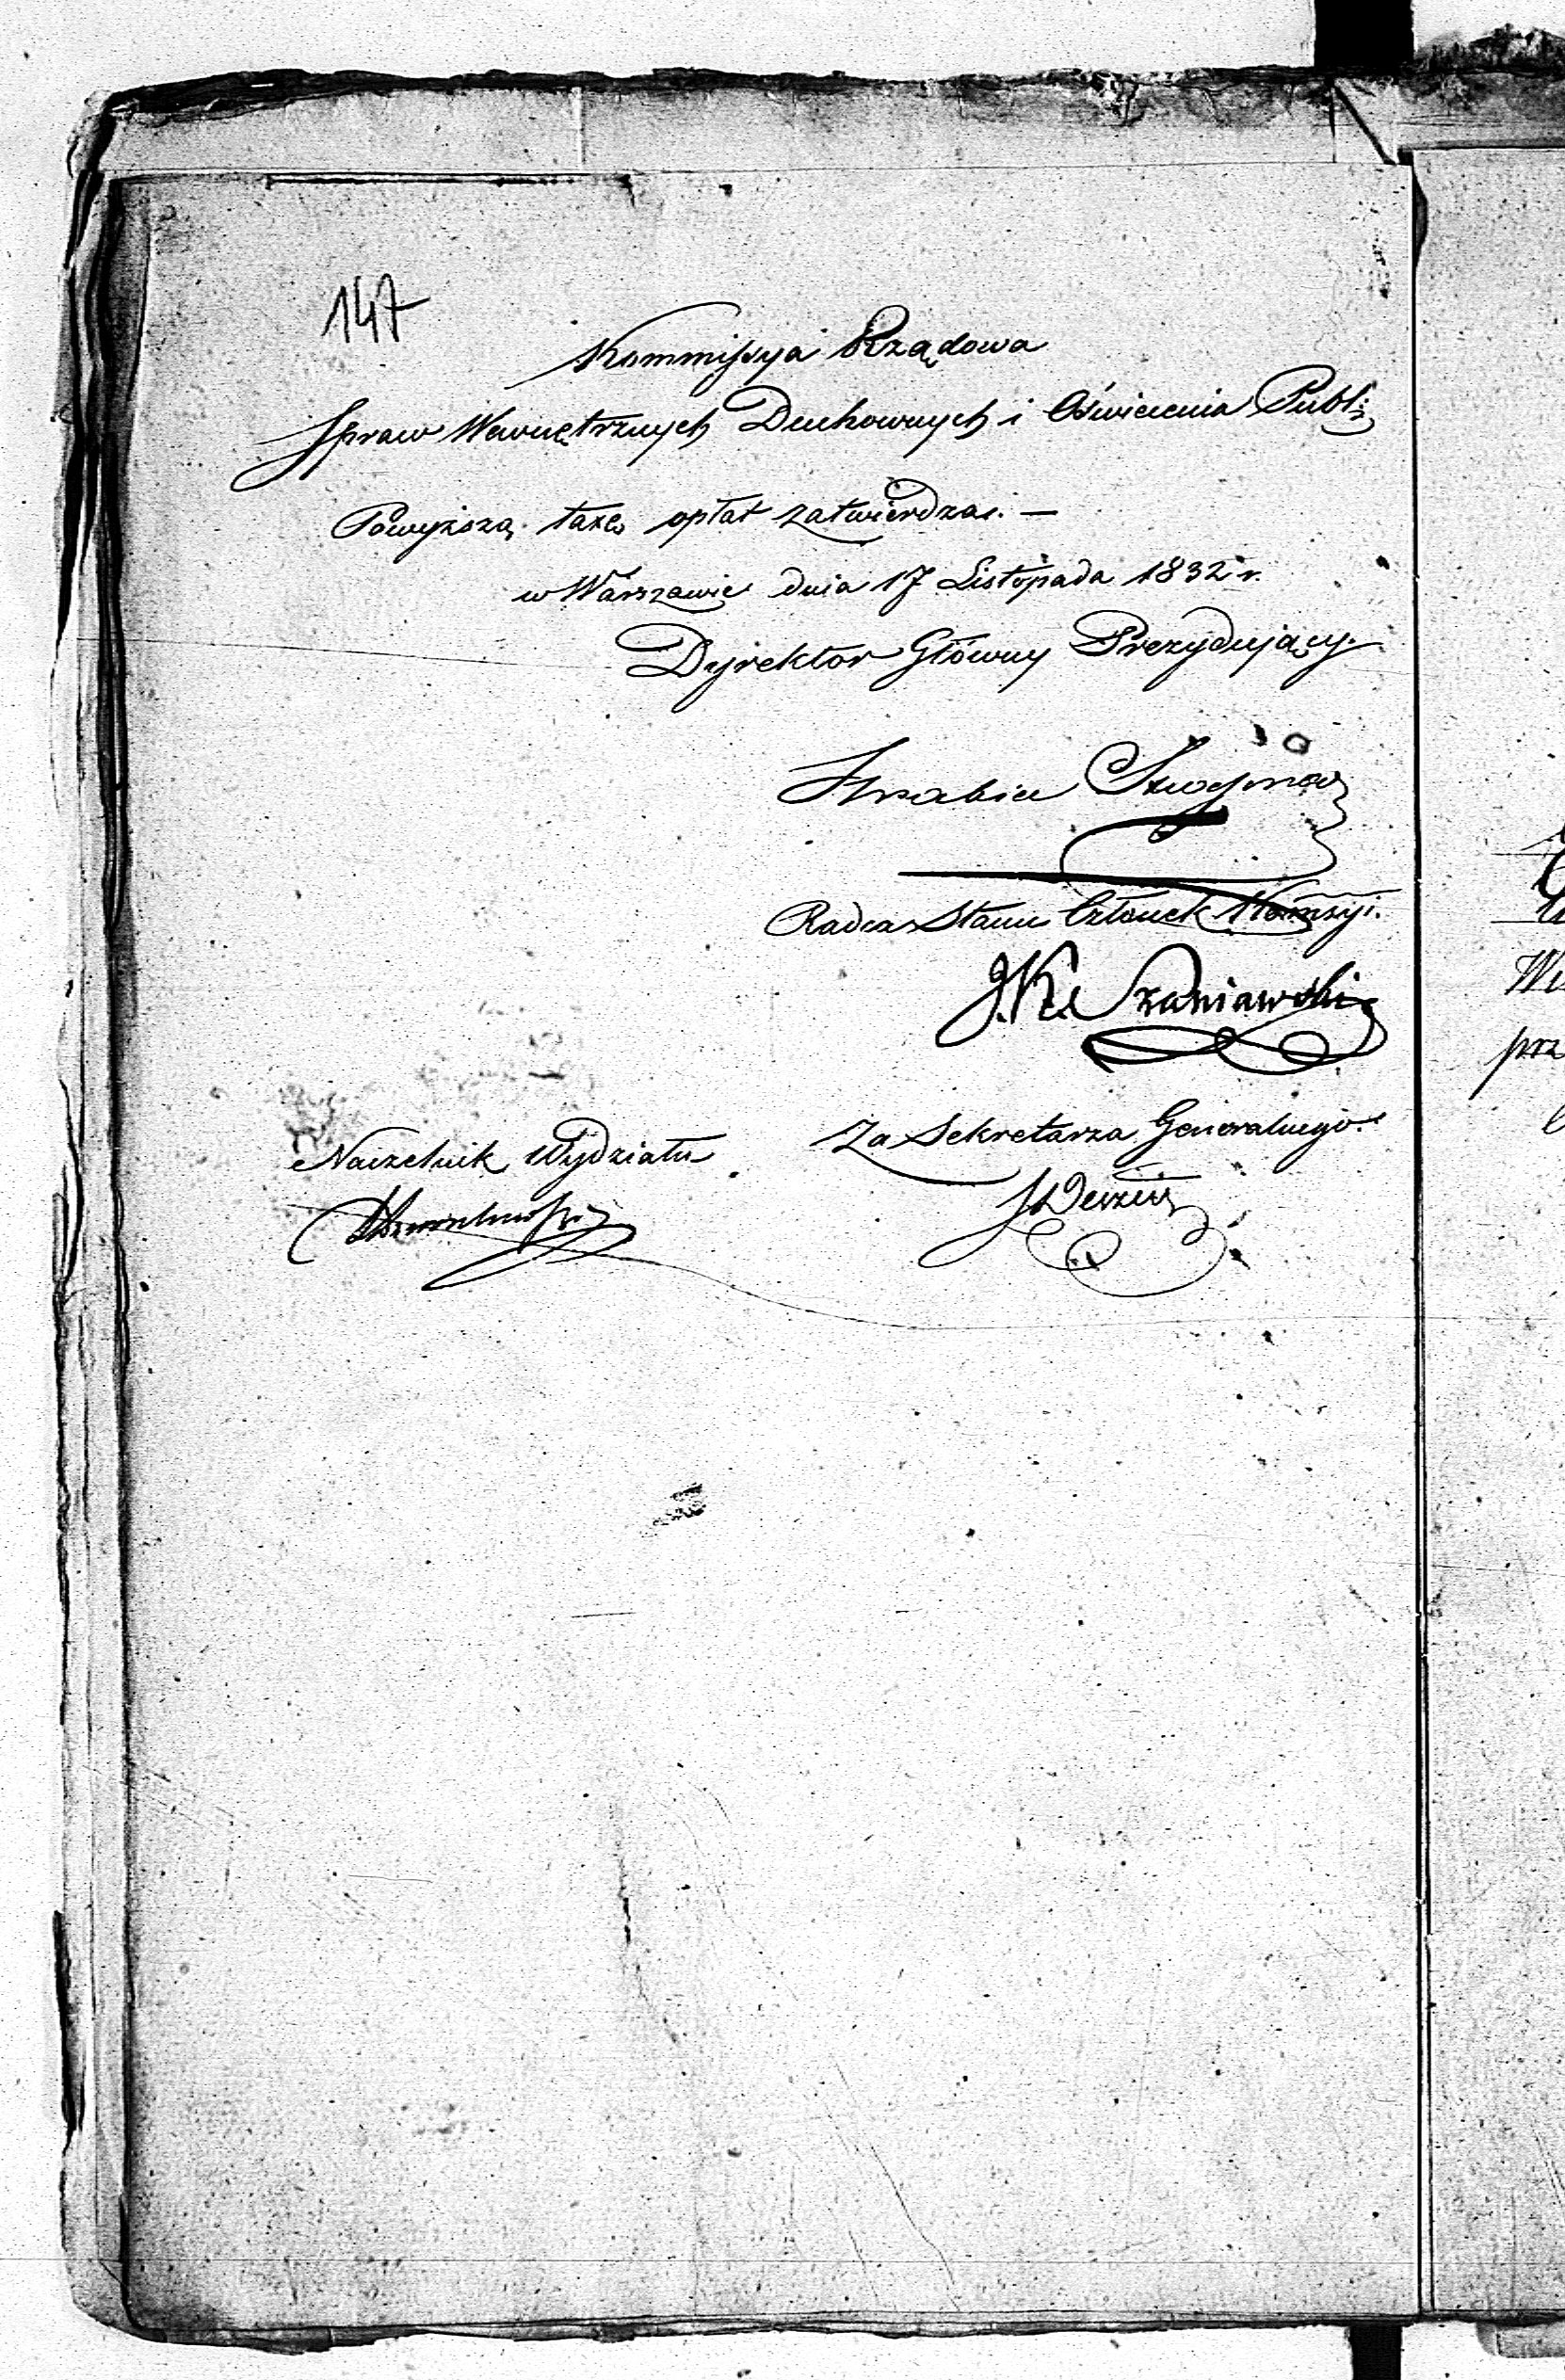 147
Kommissya Rządowa
Spraw Wewnętrznych Duchownych i Oświecenia Publ:
Powyższą taxę opłat zatwierdza. —
w Warszawie dnia 17 Listopada 1832 r.
Dyrektor Główny Prezydujący
Hrabia
Radca Stanu Członek Kommsyi.
J. K. Szaniawski
Za Sekretarza Generalnego
Naczelnik Wydziału